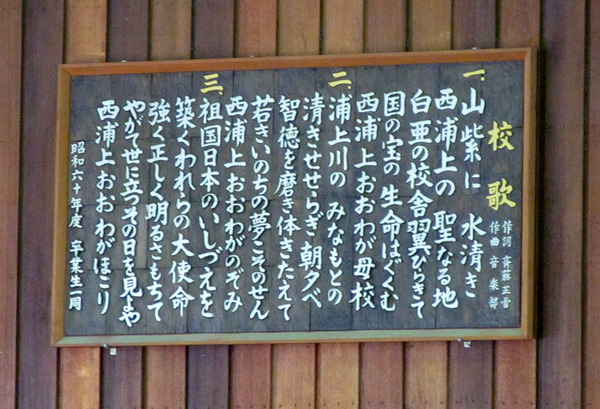 校歌
作詞 斉藤正雪
作曲 音楽部
一、山紫に 水清き
西浦上の 聖なる地
白亜の校舎 翼ひらきて
国の宝の 生命はぐくむ
西浦上 おおわが母校
二、浦上川の みなもとの
清きせせらぎ 朝夕べ
智徳を磨き 体きたえて
若きいのちの 夢こそのせん
西浦上 おおわがのぞみ
三、祖国日本の いしづえを
築くわれらの 大使命
強く正しく 明るさもちて
やがて世に立つ その日を見よや
西浦上 おおわがほこり
昭和六十年度 卒業生一同